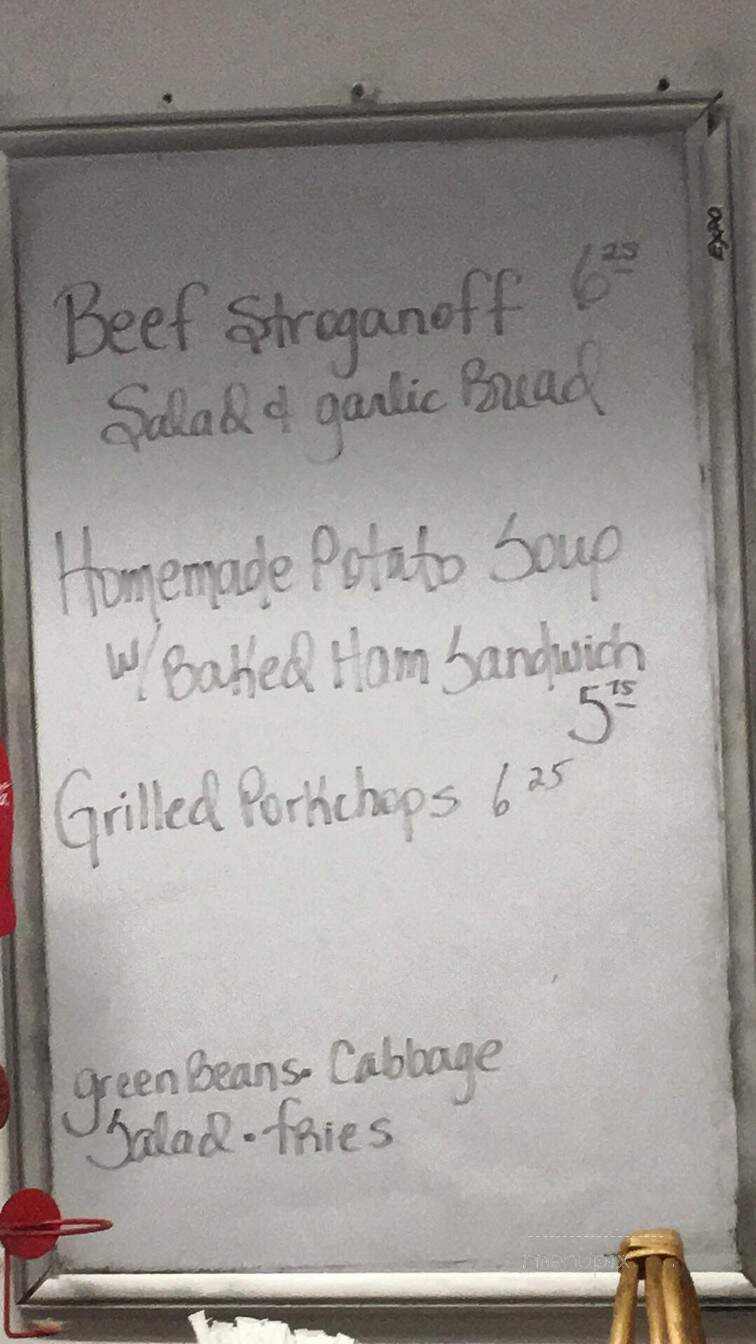 EXPO
Beef Stroganoff 6 25
Salad & garlic Bread
Homemade Potato Soup
w/ Baked Ham Sandwich
5 75
Grilled Porkchops 6 25
green Beans. Cabbage
Salad. fries
menupix